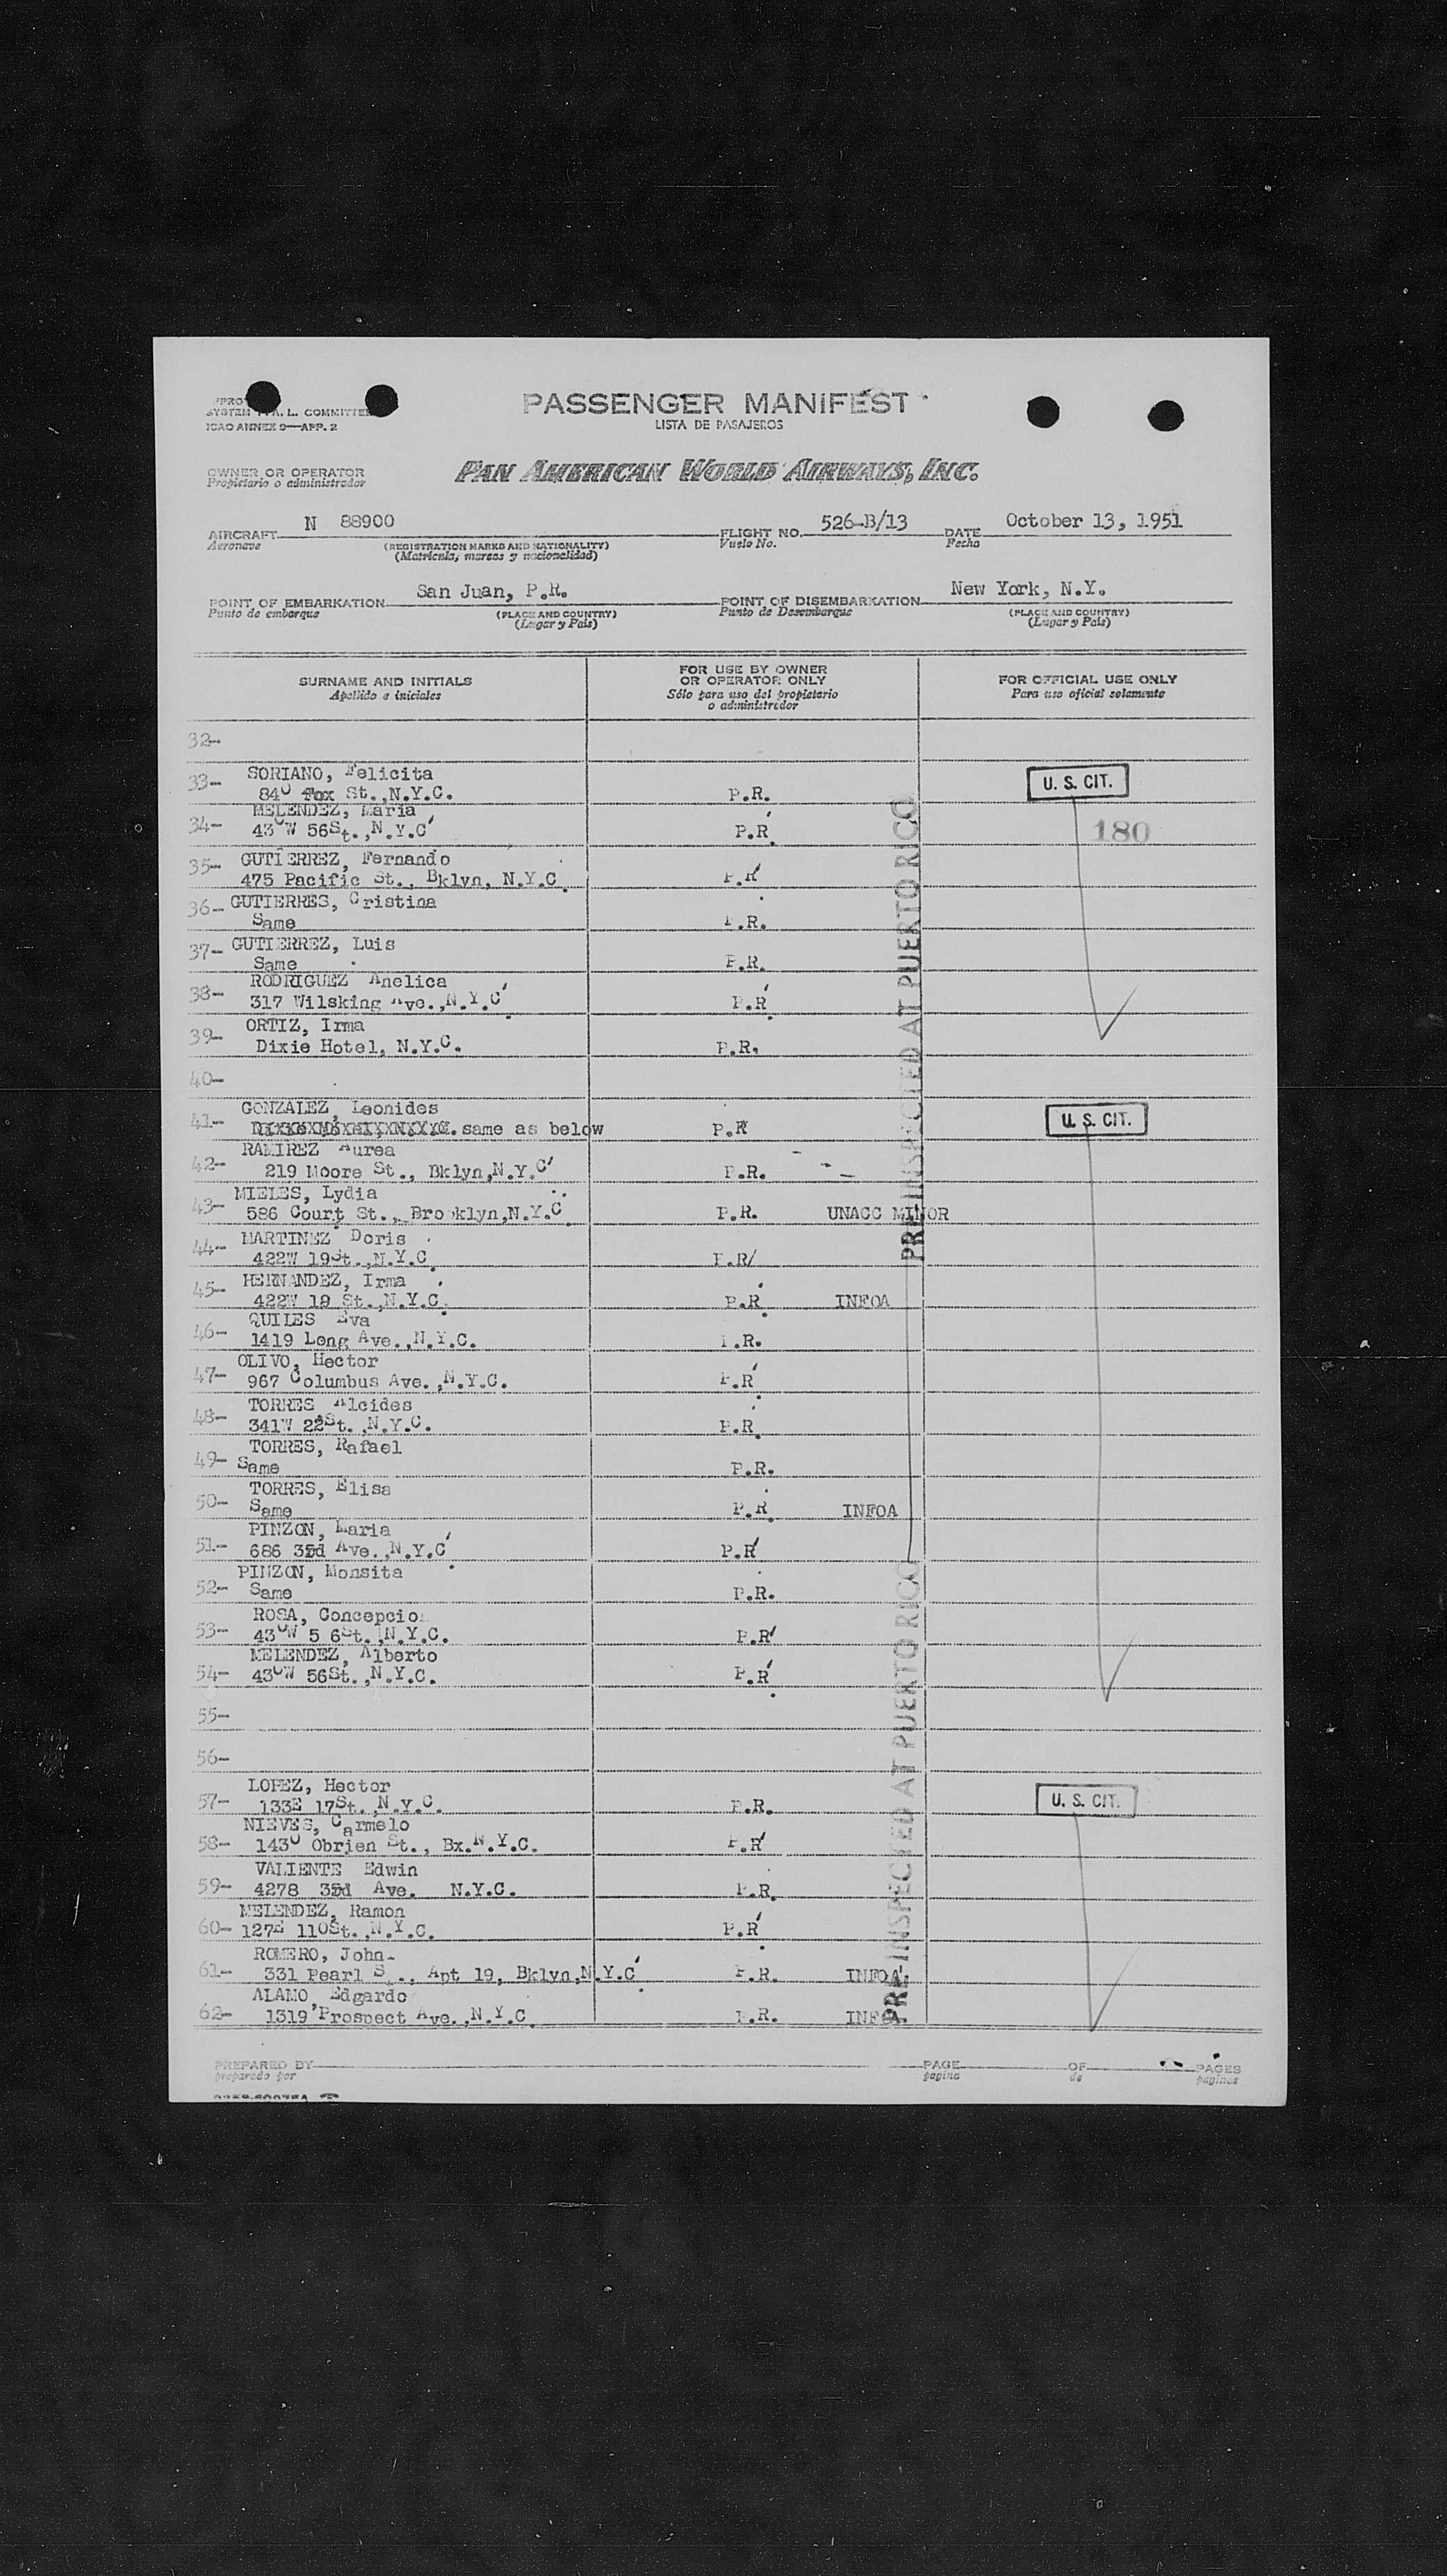 SYSTEM
A. L. COMMITTEE
ICAO ANNEX 9—APP. 2
PASSENGER MANIFEST
LISTA DE PASAJEROS
OWNER OR OPERATOR
Propietario o administrador
PAN AMERICAN WORLD AIRWAYS, INC.
AIRCRAFT N 88900 FLIGHT NO. 526-B/13 DATE October 13, 1951
Aeronave (REGISTRATION MARKS AND NATIONALITY) Vuelo No. Fecha
(Matrícula, marcas y nacionalidad)
POINT OF EMBARKATION San Juan, P.R. POINT OF DISEMBARKATION New York, N.Y.
Punto de embarque (PLACE AND COUNTRY) Punto de Desembarque (PLACE AND COUNTRY)
(Lugar y País) (Lugar y País)
SURNAME AND INITIALS
Apellido e iniciales
FOR USE BY OWNER
OR OPERATOR ONLY
Sólo para uso del propietario
o administrador
FOR OFFICIAL USE ONLY
Para uso oficial solamente
32-
33- SORIANO, Felicita
840 Fox St.,N.Y.C. P.R. U. S. CIT.
34- MELENDEZ, Maria
430W 56St.,N.Y.C P.R. 180
35- GUTIERREZ, Fernando
475 Pacific St., Bklyn, N.Y.C. P.R
36- GUTIERRES, Cristina
Same P.R.
37- GUTIERREZ, Luis
Same P.R.
38- RODRIGUEZ Anelica
317 Wilsking Ave.,N.Y.C P.R
39- ORTIZ, Irma
Dixie Hotel, N.Y.C. P.R.
40-
41- GONZALEZ, Leonides
same as below P.R U. S. CIT.
42- RAMIREZ Aurea
219 Moore St., Bklyn,N.Y.C P.R.
43- MIELES, Lydia
586 Court St., Brooklyn,N.Y.C P.R. UNACC MINOR
44- MARTINEZ Doris
422W 19St.,N.Y.C. P.R/
45- HERNANDEZ, Irma
422W 19 St.,N.Y.C. P.R INFOA
46- QUILES Eva
1419 Long Ave.,N.Y.C. P.R.
47- OLIVO, Hector
967 Columbus Ave.,N.Y.C. P.R
48- TORRES Alcides
341W 22St.,N.Y.C. P.R.
49- TORRES, Rafael
Same P.R.
50- TORRES, Elisa
Same P.R. INFOA
51- PINZON, Maria
686 3rd Ave.,N.Y.C P.R
52- PINZON, Monsita
Same P.R.
53- ROSA, Concepcio
430W 5 6St.,N.Y.C. P.R
54- MELENDEZ, Alberto
430W 56St.,N.Y.C. P.R
55-
56-
57- LOPEZ, Hector
133E 17St.,N.Y.C. P.R. U. S. CIT.
58- NIEVES, Carmelo
1430 Obrien St., Bx.N.Y.C. P.R
59- VALIENTE Edwin
4278 3rd Ave. N.Y.C. P.R.
60- MELENDEZ, Ramon
127E 110St.,N.Y.C. P.R
61- ROMERO, John
331 Pearl S ., Apt 19, Bklyn,N.Y.C P.R. INFOA
62- ALAMO Edgardo
1319 Prospect Ave.,N.Y.C. P.R.
PRE-INSPECTED AT PUERTO RICO
PRE-INSPECTED AT PUERTO RICO
PREPARED BY PAGE OF PAGES
preparado por página de páginas